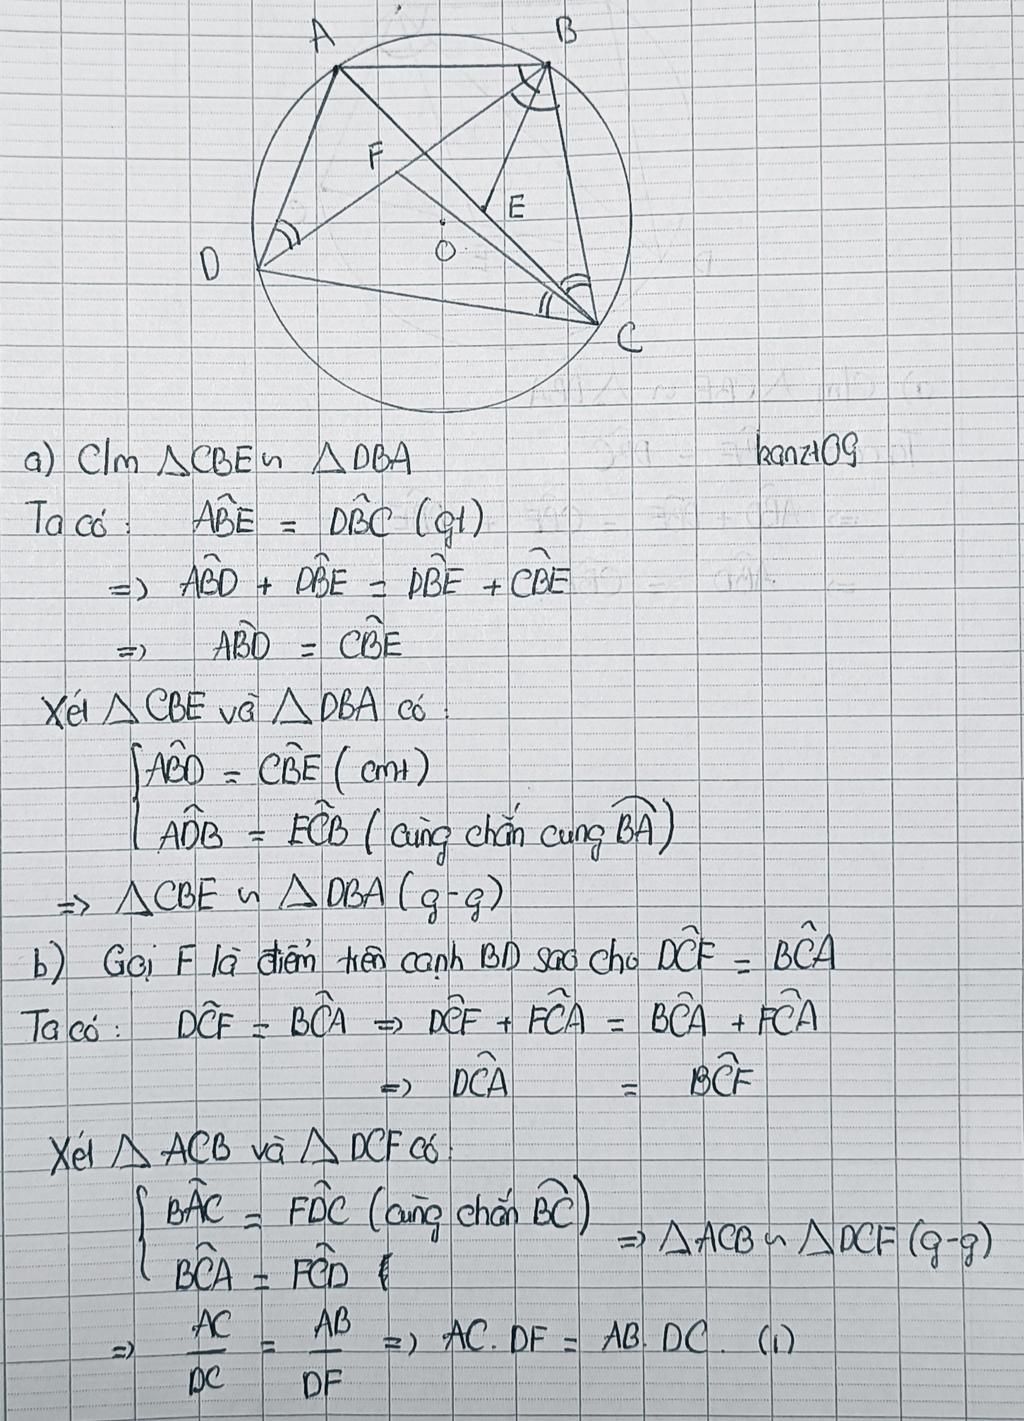 A
B
F
E
O
D
C
a) C/m △CBE ∽ △DBA
kanzt09
Ta có: ABÊ = DBĈ (gt)
=> ABD̂ + DBÊ = DBÊ + CBÊ
=> ABD̂ = CBÊ
Xét △CBE và △DBA có:
ABD̂ = CBÊ (cmt)
ADB̂ = ECB̂ (cùng chắn cung BA)
=> △CBE ∽ △DBA (g-g)
b) Gọi F là điểm trên cạnh BD sao cho DCF̂ = BCÂ
Ta có: DCF̂ = BCÂ => DCF̂ + FCÂ = BCÂ + FCÂ
=> DCÂ = BCF̂
Xét △ACB và △DCF có:
BAĈ = FDĈ (cùng chắn BC)
BCÂ = FCD̂
=> △ACB ∽ △DCF (g-g)
=> AC/DC = AB/DF => AC. DF = AB. DC. (1)